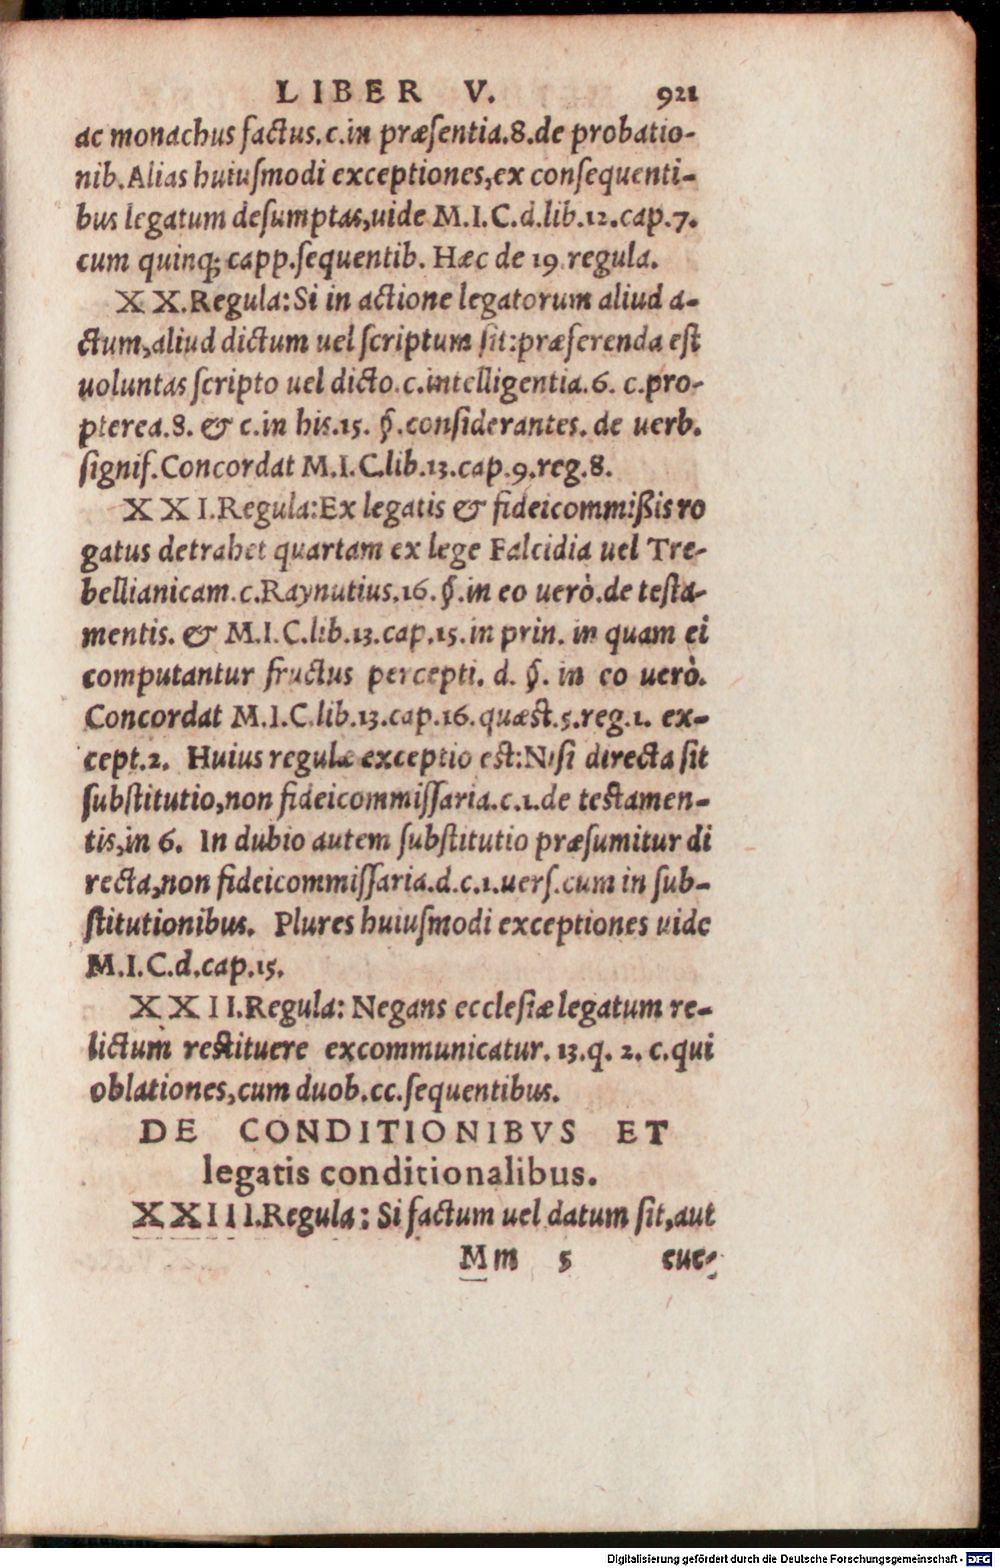 LIBER V. 921
ac monachus factus.c.in præsentia.8.de probatio-
nib.Alias huiusmodi exceptiones,ex consequenti-
bus legatum desumptas,uide M.I.C.d.lib.12.cap.7.
cum quinq; capp.sequentib. Hæc de 19 regula.
XX.Regula:Si in actione legatorum aliud a-
ctum,aliud dictum uel scriptum sit:præferenda est
uoluntas scripto uel dicto.c.intelligentia.6. c.pro-
pterea.8. & c.in his.15. §.considerantes. de uerb.
signif.Concordat M.I.C.lib.13.cap.9.reg.8.
XXI.Regula:Ex legatis & fideicommißis ro
gatus detrahet quartam ex lege Falcidia uel Tre-
bellianicam.c.Raynutius.16.§.in eo uerò.de testa-
mentis. & M.I.C.lib.13.cap.15.in prin. in quam ei
computantur fructus percepti. d. §. in eo uerò.
Concordat M.I.C.lib.13.cap.16.quæst.5.reg.1. ex-
cept.2. Huius regulæ exceptio est:Nisi directa sit
substitutio,non fideicommissaria.c.1.de testamen-
tis,in 6. In dubio autem substitutio præsumitur di
recta,non fideicommissaria.d.c.1.uers.cum in sub-
stitutionibus. Plures huiusmodi exceptiones uide
M.I.C.d.cap.15.
XXII.Regula: Negans ecclesiæ legatum re-
lictum restituere excommunicatur. 13.q. 2. c.qui
oblationes,cum duob.cc.sequentibus.
DE CONDITIONIBVS ET
legatis conditionalibus.
XXIII.Regula: Si factum uel datum sit,aut
Mm 5 eue-
Digitalisierung gefördert durch die Deutsche Forschungsgemeinschaft - DFG